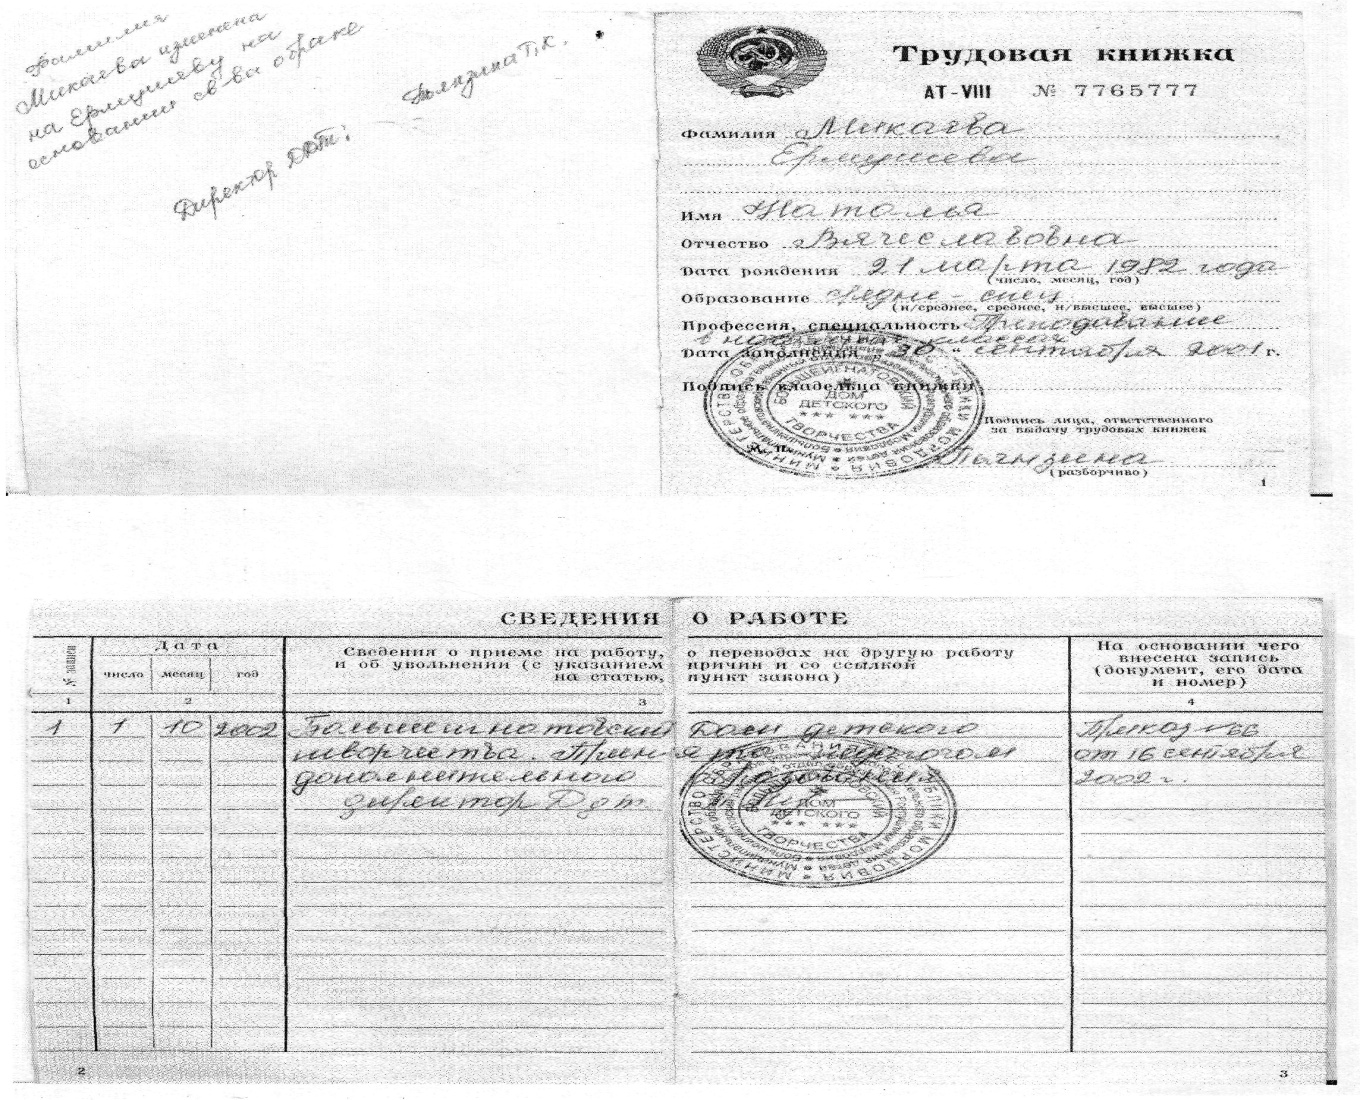 Фамилия
Микаева изменена
на Ермушеву на
основании св-ва о браке
Директор ДДТ: Пьянзина Т.К.
Трудовая книжка
АТ-VIII № 7765777
Фамилия Микаева
Ермушева
Имя Наталья
Отчество Вячеславовна
Дата рождения 21 марта 1982 года
(число, месяц, год)
Образование средне - спец
(н/среднее, среднее, н/высшее, высшее)
Профессия, специальность Преподавание
в начальных классах
Дата заполнения „ 30 “ сентября 2001 г.
Подпись владельца книжки
БОЛЬШЕИГНАТОВСКИЙ
ДОМ
ДЕТСКОГО
ТВОРЧЕСТВА
Подпись лица, ответственного
за выдачу трудовых книжек
Пьянзина
(разборчиво)
1
СВЕДЕНИЯ О РАБОТЕ
№ записи
Дата
число месяц год
Сведения о приеме на работу, о переводах на другую работу
и об увольнении (с указанием причин и со ссылкой
на статью, пункт закона)
На основании чего
внесена запись
(документ, его дата
и номер)
1 2 3 4
1 1 10 2002 Большеигнатовский Дом детского Приказ № 66
творчества. Принята педагогом от 16 сентября
дополнительного образования 2002 г.
директор ДДТ
ДОМ
ДЕТСКОГО
ТВОРЧЕСТВА
2 3